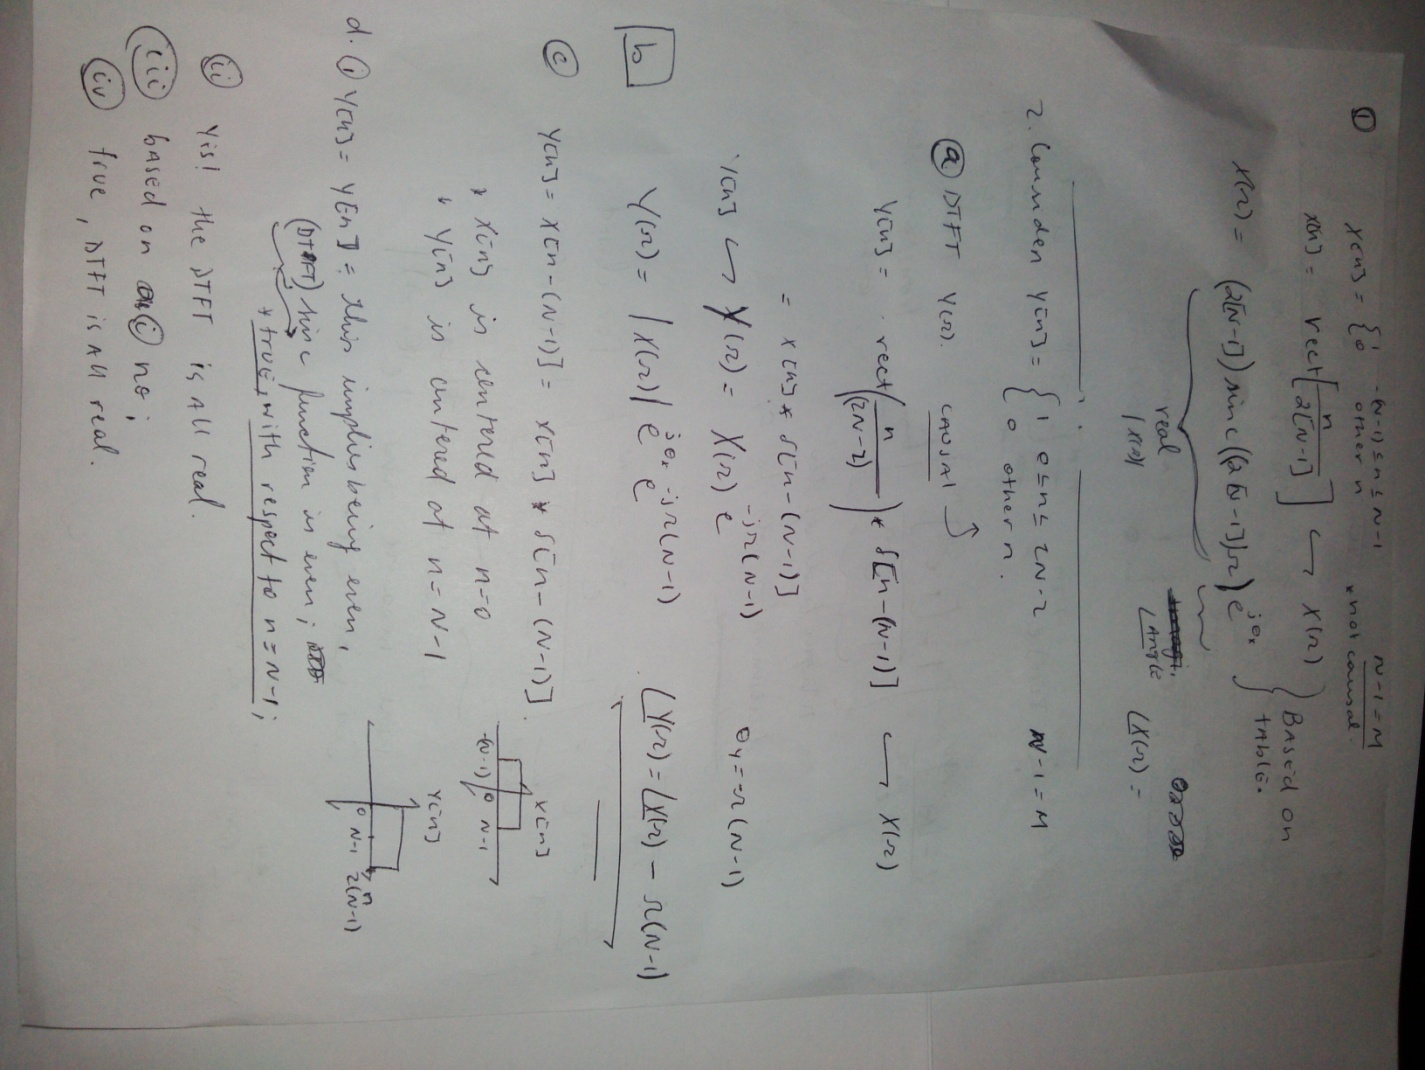 ① x[n] = { 1 -(N-1) ≤ n ≤ N-1
0 other n
N-1 = M
* not causal.
x[n] = rect[ n / 2[N-1] ] ↪ X(Ω) } Based on table.
X(Ω) = (2[N-1]) sinc((2[N-1])Ω) e^{jθx}
real
|X(Ω)|
∠Angle
∠X(Ω) =
2. Consider y[n] = { 1 0 ≤ n ≤ 2N-2
0 other n.
N-1 = M
ⓐ DTFT Y(Ω). causal
y[n] = rect( n / (2N-2) ) * δ[n-(N-1)] ↪ X(Ω)
= x[n] * δ[n-(N-1)]
y[n] ↪ Y(Ω) = X(Ω) e^{-jΩ(N-1)} θy = -Ω(N-1)
b Y(Ω) = |X(Ω)| e^{jθx} e^{-jΩ(N-1)} ∠Y(Ω) = ∠X(Ω) - Ω(N-1)
ⓒ y[n] = x[n-(N-1)] = x[n] * δ[n-(N-1)].
* x[n] is centered at n=0
* y[n] is centered at n = N-1
x[n]
-(N-1) 0 N-1
y[n]
0 N-1 2(N-1)
n
d. ⓘ y[n] = y[n] = this implies being even,
(DTFT) sinc function is even;
* true, with respect to n = N-1;
ⓘⓘ Yes! the DTFT is all real.
ⓘⓘⓘ based on ⓘ no;
ⓘⓥ true, DTFT is all real.